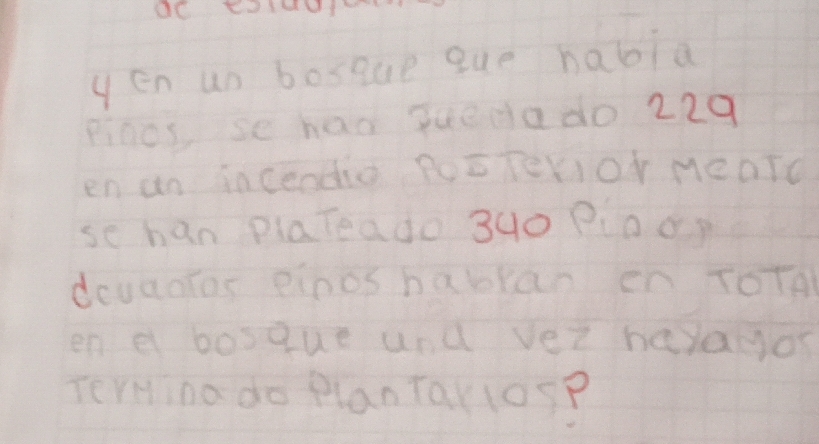 de estudia
y en un bosque que habia
Pinos, se han quedado 229
en un incendio Posteriormente
se han Plateado 340 Pinos
¿cuantos pinos habran en TOTAL
en el bosque una vez hayamos
Terminado Plantarlos?